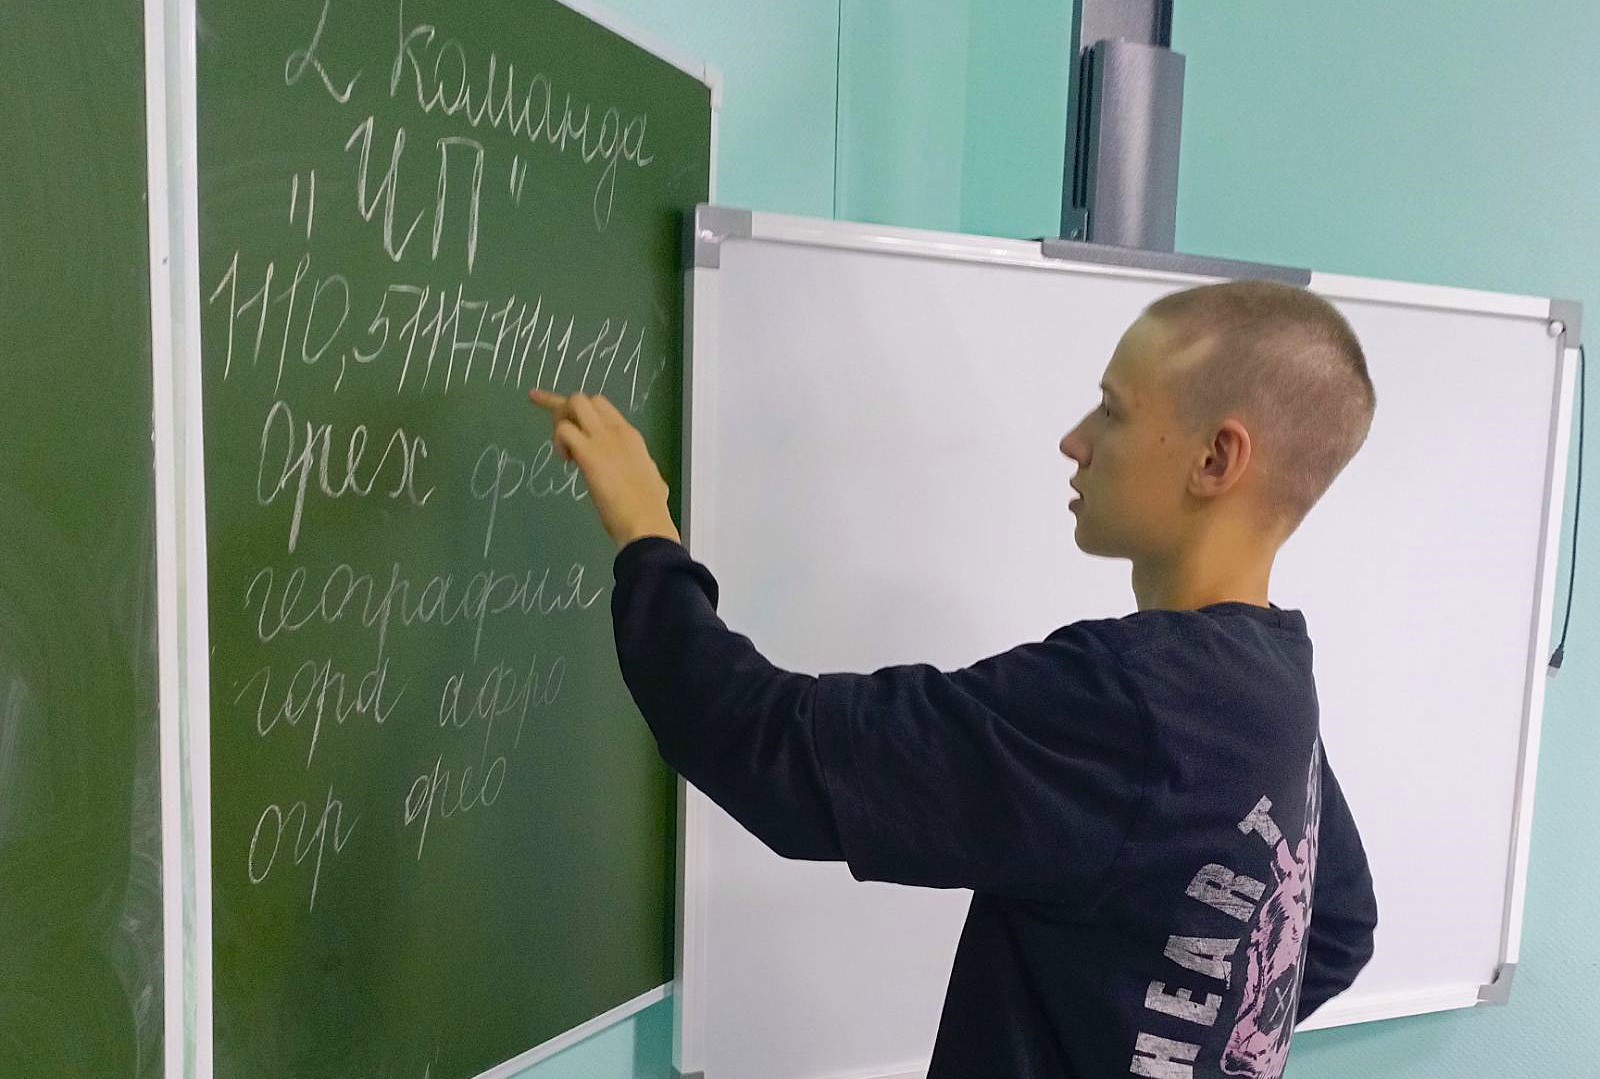 2 команда
"ЧП"
1110,5111711111111
Орех фея
география
гора афро
огр фео
HEART